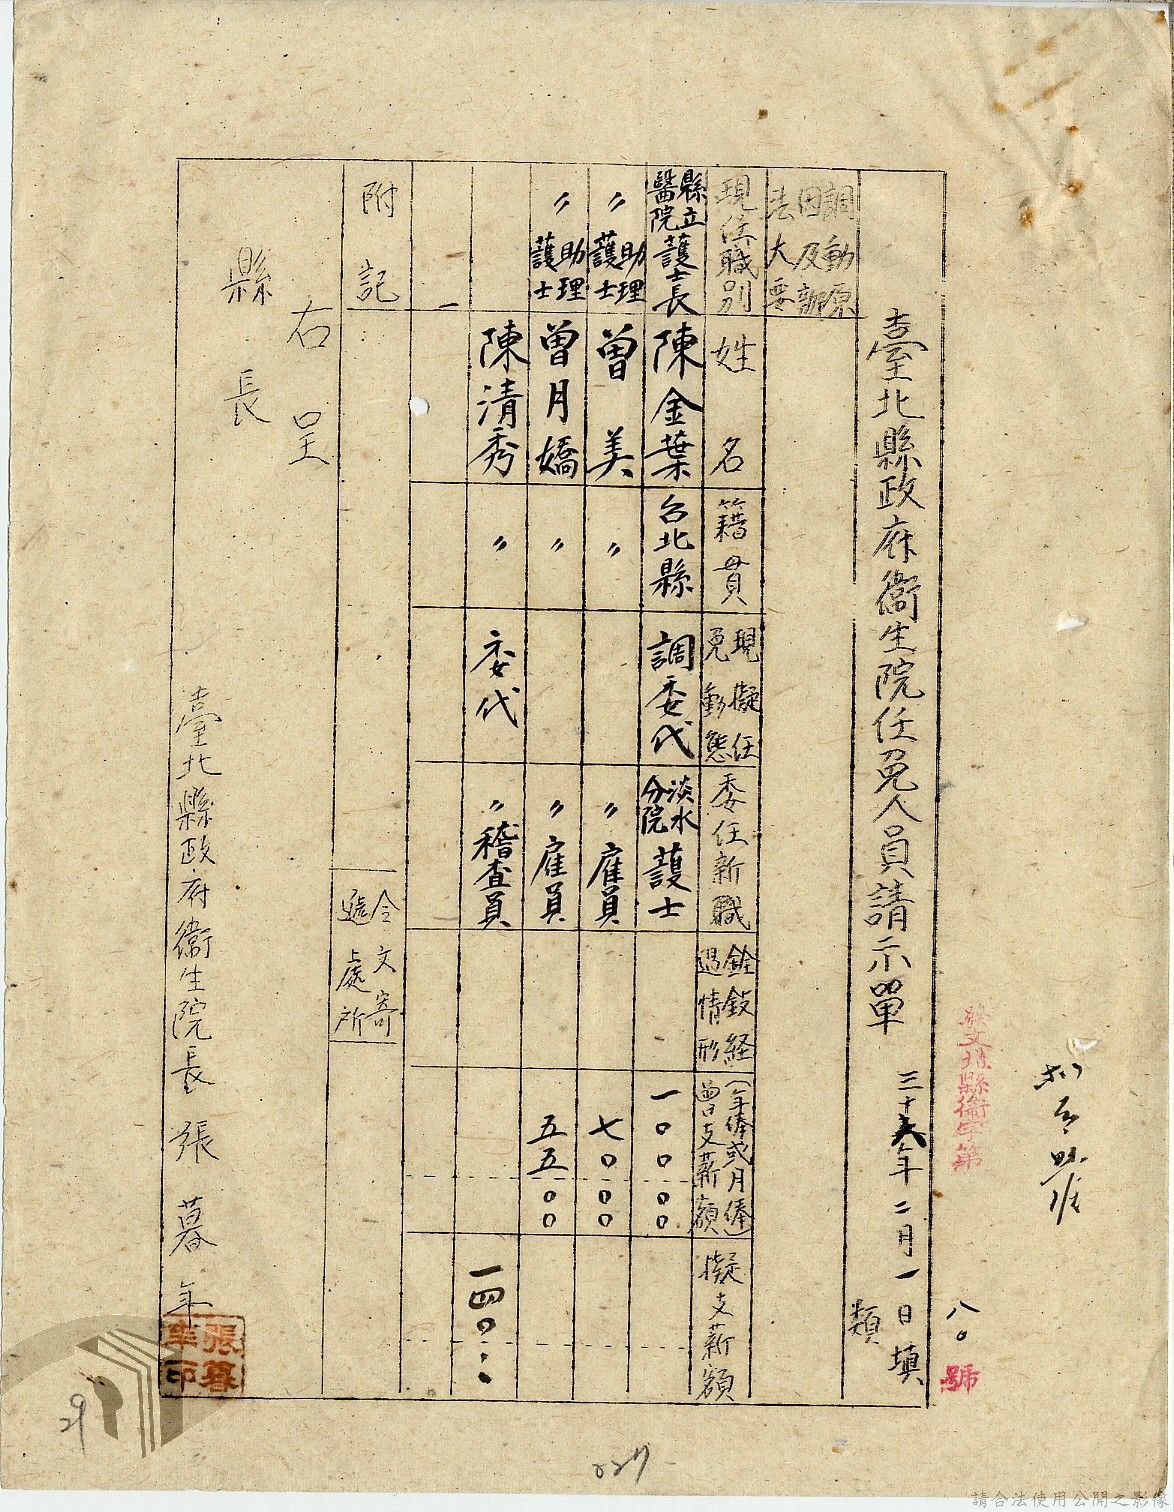 發文北縣衛字第
八〇號
臺北縣政府衛生院任免人員請示單
三十六年二月一日填
類
調動原因及辦法大要
現任職別
姓名
籍貫
現擬任免動態
委任新職
銓敍経過情形
(年俸或月俸)曾支薪額
擬支薪額
縣立醫院護士長
陳金葉
台北縣
調委代
淡水分院護士
一〇〇〇〇
〃助理護士
曾美
〃
〃雇員
七〇〇〇
〃助理護士
曾月嬌
〃
〃雇員
五五〇〇
陳清秀
〃
委代
〃稽查員
一四〇
附記
一
令文寄遞處所
右呈
縣長
臺北縣政府衛生院長張暮年
張暮年印
29
027
請合法使用公開之影像